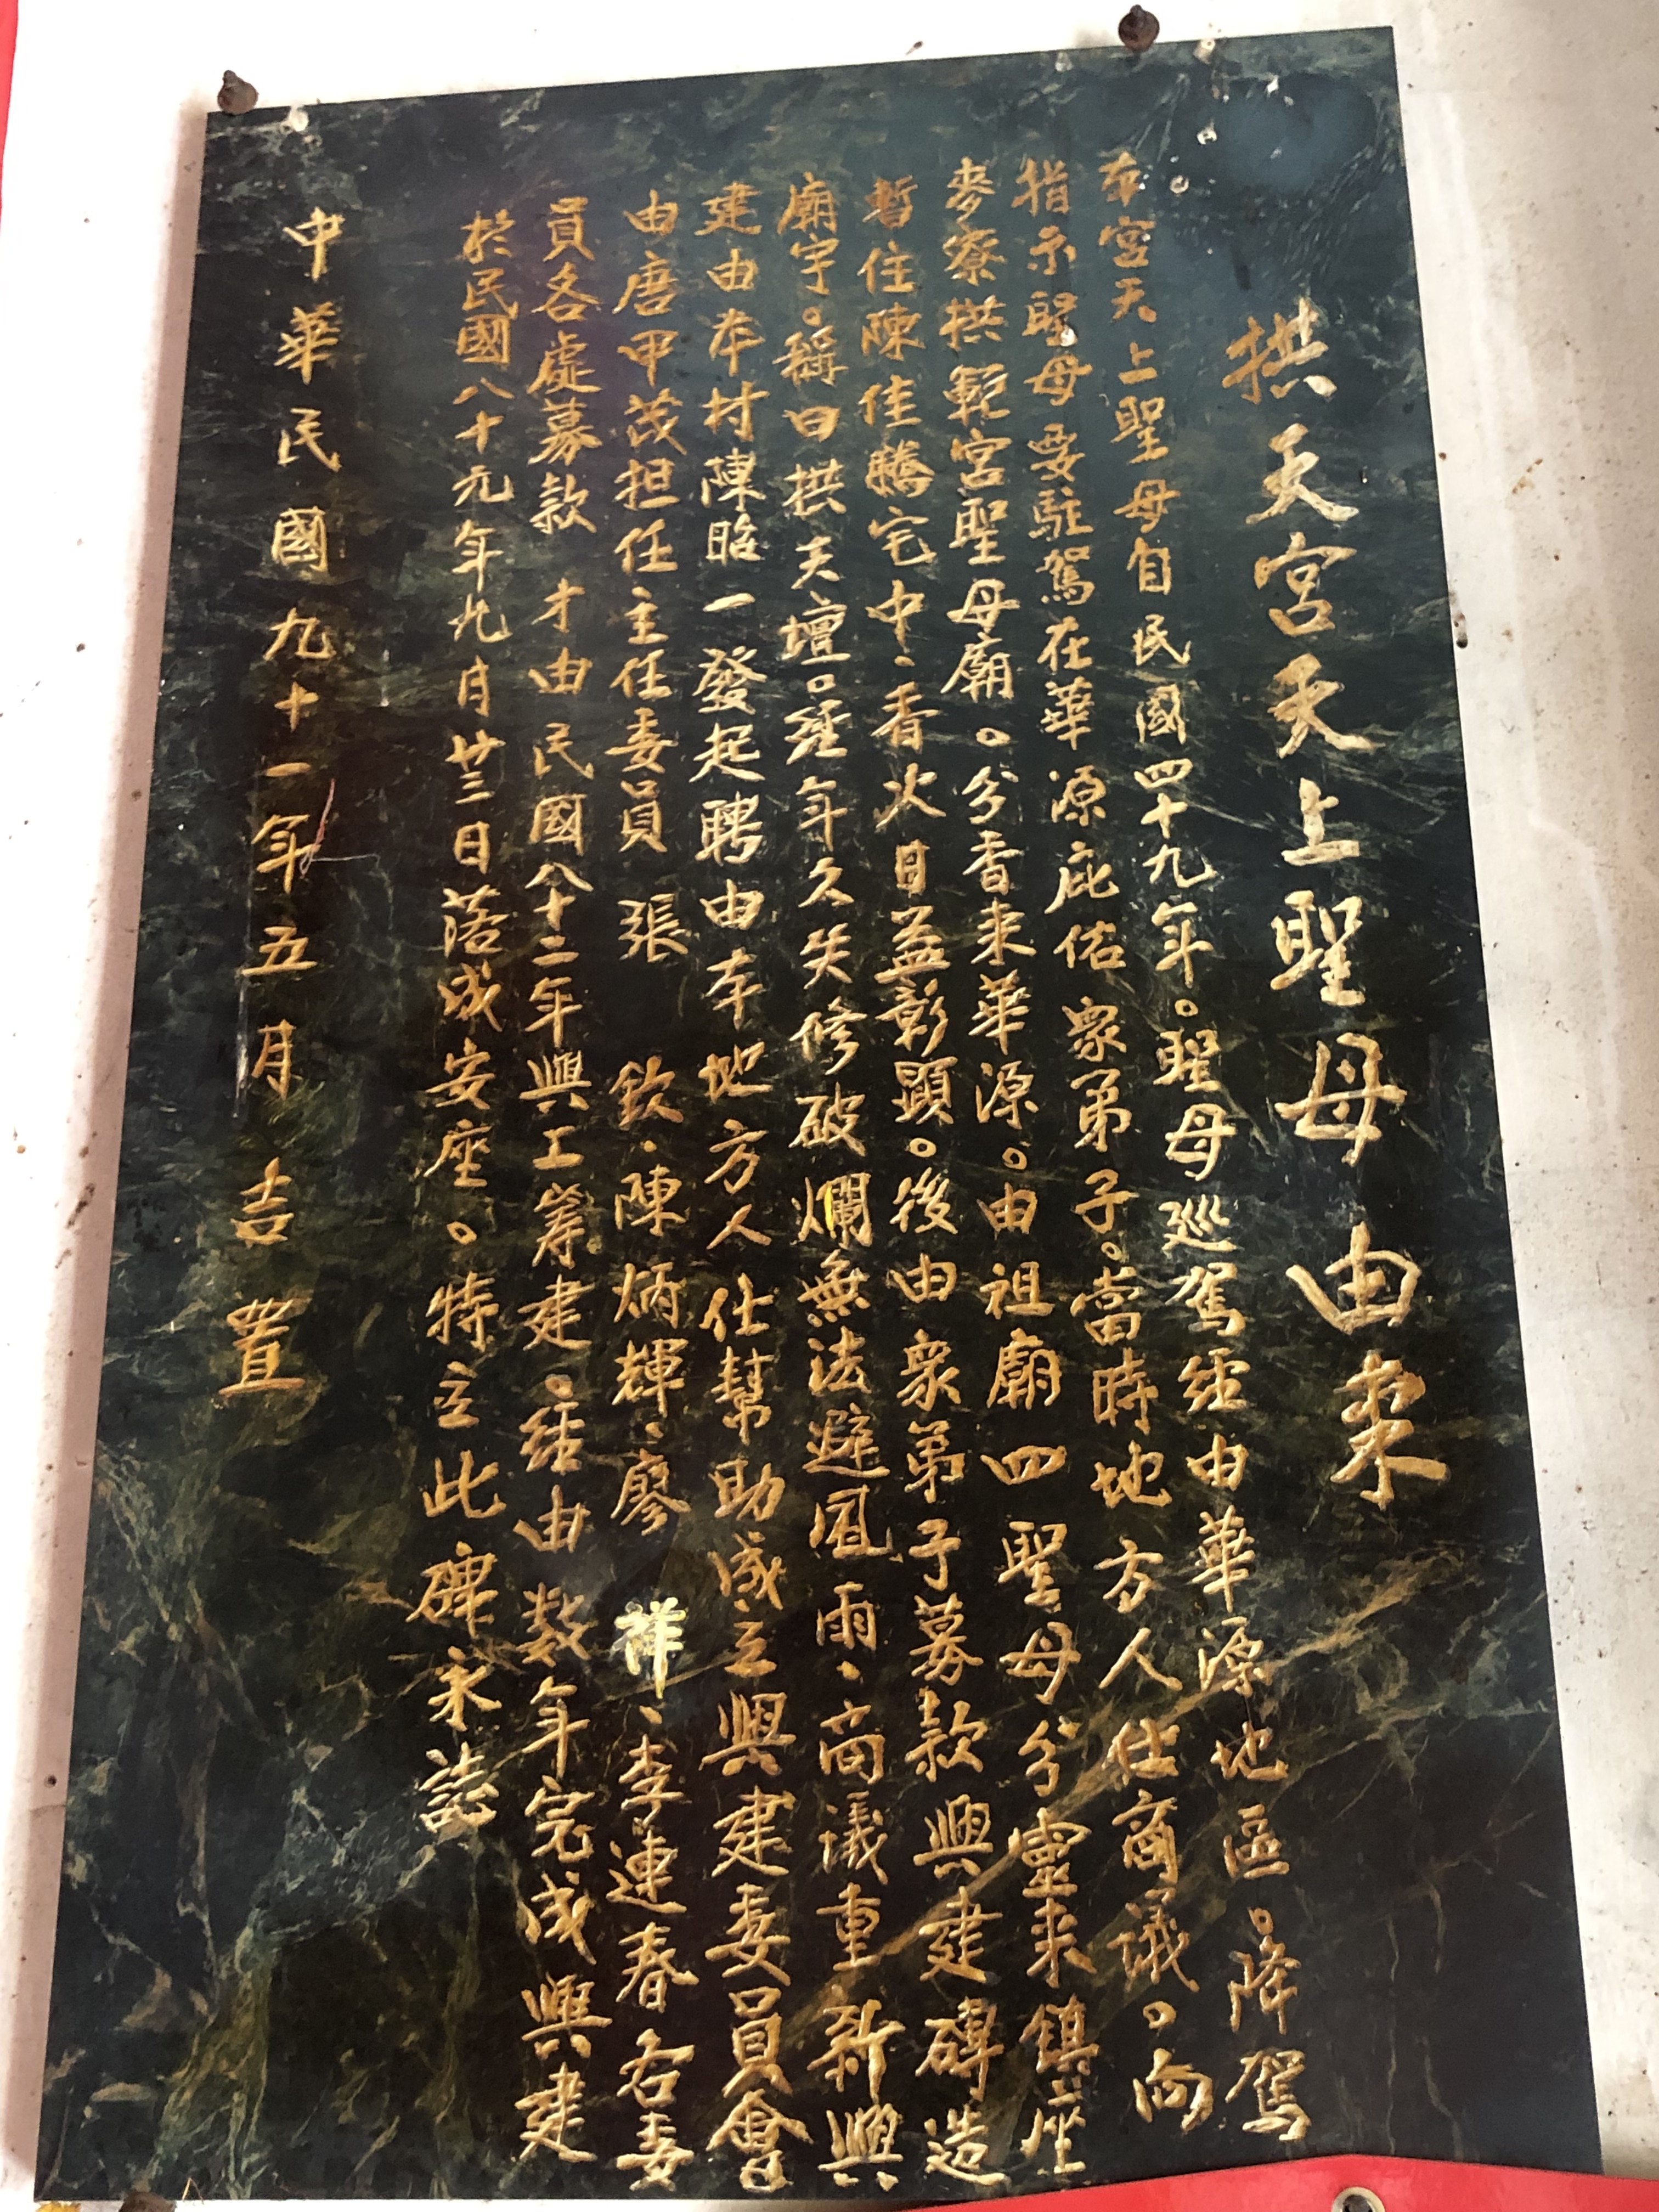 拱天宮天上聖母由來
本宮天上聖母自民國四十九年。聖母巡駕經由華源地區。降駕
指示聖母要駐駕在華源庇佑眾弟子。當時地方人仕商議。向
麥寮拱範宮聖母廟。分香來華源。由祖廟四聖母分靈來鎮座
暫住陳佳騰宅中、香火日益彰顕。後由眾弟子募款興建磚造
廟宇。稱曰拱天壇。經年久失修破爛無法避風雨、商議重新興
建由本村陳昭一發起聘由本地方人仕幫助成立興建委員會
由唐甲茂担任主任委員 張 欽、陳炳輝、廖 祥、李連春各委
員各處募款 才由民國八十二年興工籌建、經由数年完成興建
於民國八十九年九月廿三日落成安座。特立此碑永誌
中華民國九十一年五月吉置